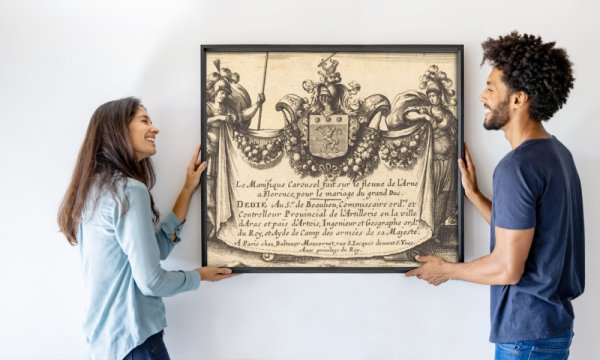 Le Manifique Carousel fait sur le fleuue de l'Arne
a Florence, pour le mariage du grand Duc.
DEDIÉ Au Sr. de Beaulieu, Commissaire ordre. et
Controlleur Provincial de l'Artillerie en la ville
d'Aras et païs d'Artois, Ingenieur et Geographe ordre.
du Roy, et Ayde de Camp des armées de sa Majesté.
A Paris chez Baltazar Moncornet, rue S. Iacques deuant S. Yues
Avec privilege du Roy.